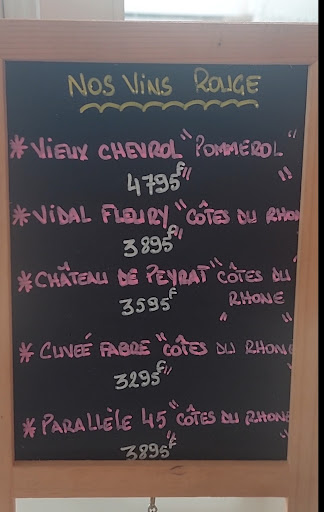 NOS VINS ROUGE
* VIEUX CHEVROL " POMMEROL "
4795F " "
* VIDAL FLEURY " CÔTES DU RHON
3895F "
* CHÂTEAU DE PEYRAT " CÔTES DU
3595F RHONE
" "
* CUVEÉ FABRE " CÔTES DU RHONE
3295F " "
* PARALLÈLE 45 " CÔTES DU RHONE
3895F " "